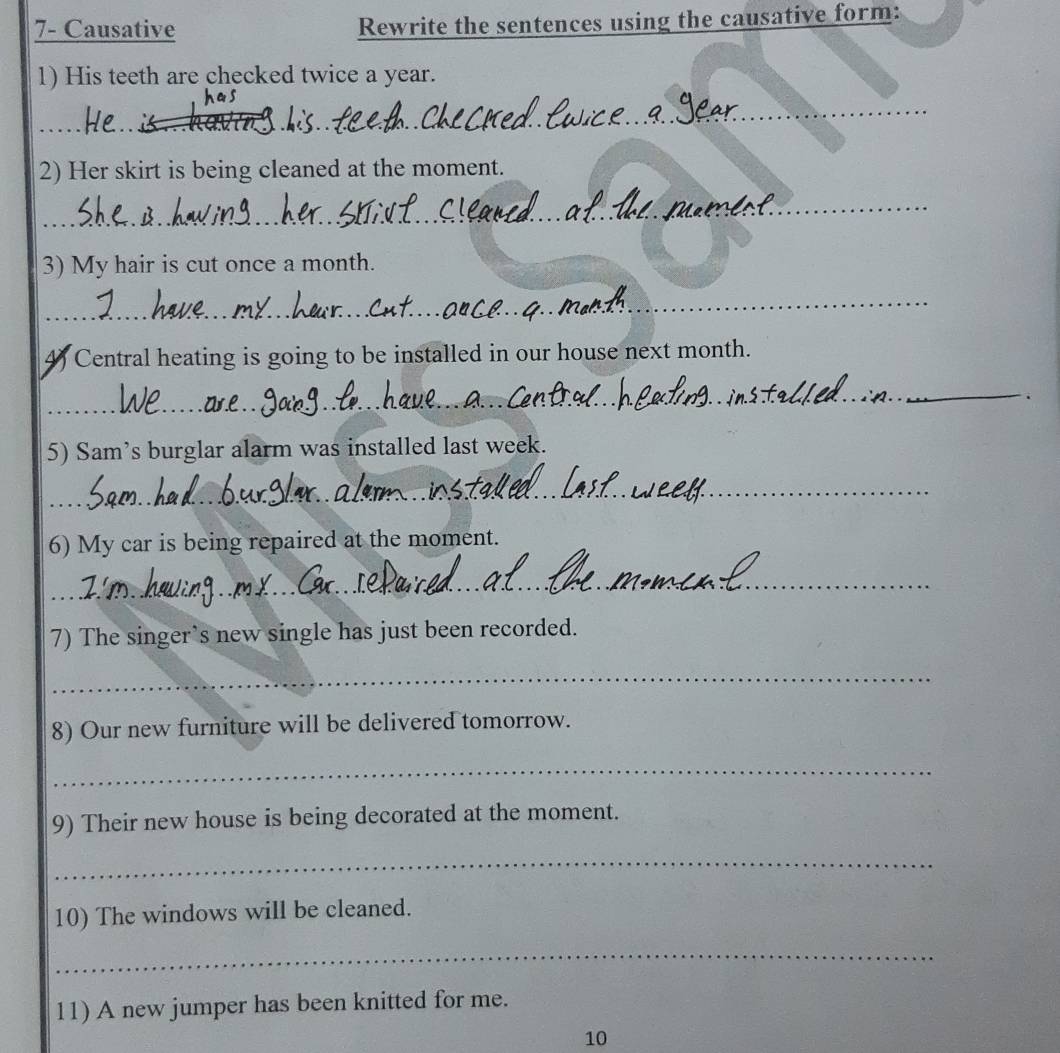 7- Causative Rewrite the sentences using the causative form:
1) His teeth are checked twice a year.
has
He is having his teeth checked twice a year
2) Her skirt is being cleaned at the moment.
She is having her skirt cleaned at the moment
3) My hair is cut once a month.
I have my heir cut once a month
4) Central heating is going to be installed in our house next month.
We are going to have a central heating installed in
5) Sam's burglar alarm was installed last week.
Sam had burglar alarm installed last week
6) My car is being repaired at the moment.
I'm having my car repaired at the moment
7) The singer's new single has just been recorded.
8) Our new furniture will be delivered tomorrow.
9) Their new house is being decorated at the moment.
10) The windows will be cleaned.
11) A new jumper has been knitted for me.
10
Miss Sam